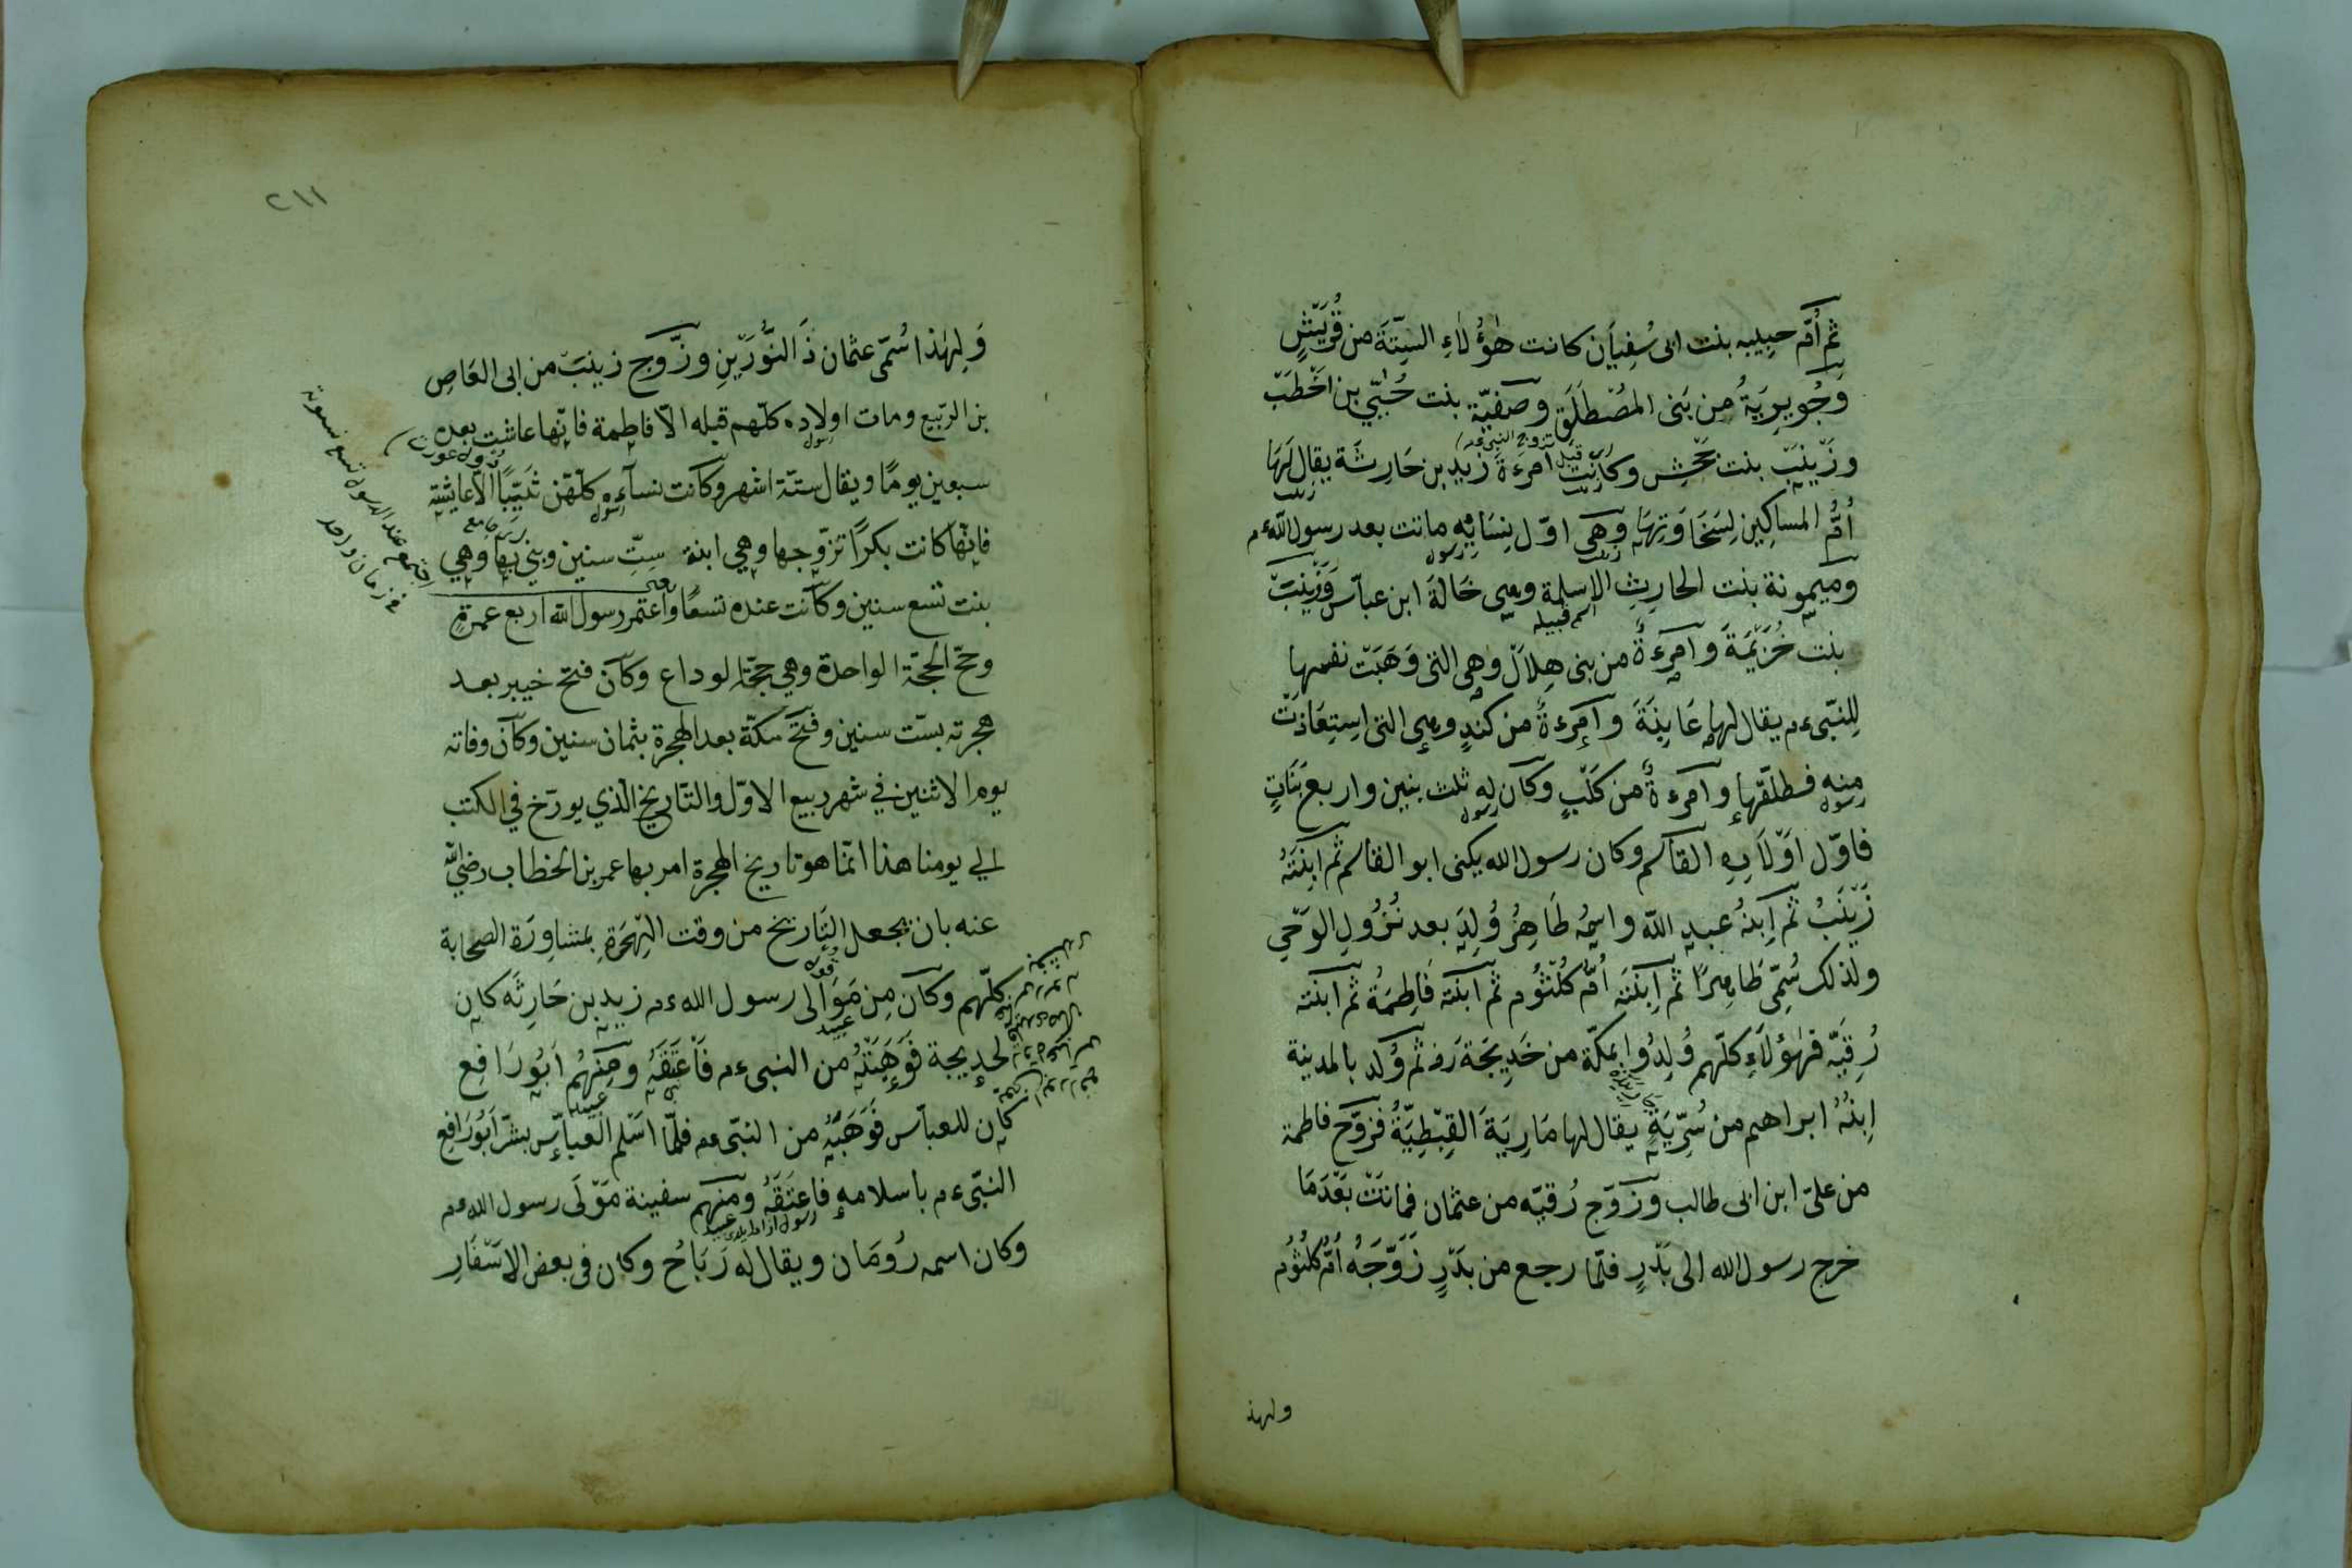 ثم أُمّ حبيبه بنت ابى سُفيَان كانت هٰؤُلٰاءِ السِتّةَ من قُرَيْشٍ
وَجُوَيرِيَةُ من بَنى المُصْطَلَق وصَفيّة بنت حُيَىّ بن اَخْطَبَ
وزَيْنَبَ بنت جَحْشٍ وكانَتْ امرءة زَيدِ بن حَارِثَة يقال لَهَا
أُمُّ المساكين لِسَخَاوَتِهَا وَهى اوّل نِسَائِهِ ماتت بعد رسول الله ءم
وميمونة بنت الحارِثِ الاسلمة وهى خَالَةَ ابن عبّاس وَزَيْنَبَ
بنت خُزَيْمَةَ وامرءةٌ من بنى هِلاَل وَهِى التى وَهَبَت نفسها
لِلنَبّى ءم يقال لها عَابِنَةَ وامرءةٌ من كندٍ وهى التى اِستِعَاذَتْ
مِنه فطلّقها وامرءةٌ من كَلْبٍ وكان له ثلث بنين واربع بَنَاتٍ
فاوّل اَوْلاَدِهِ القاسم وكان رسول الله يكنى ابو القاسم ثم ابنَتَهُ
زَيْنَبُ ثم اِبنُهُ عبد الله واسمُه طَاهِرُ وُلِدَ بعد نُزُولِ الوَحْى
ولذلك سُمّى طَاهِرًا ثم اِبنَتَه أمّ كُلْثُوم ثم ابنته فَاطِمَةُ ثم ابنته
رُقِيَّه فهٰؤُلاَءِ كلّهم وُلِدُوا بمكّة من خَدِيجَةَ رض ثم وُلد بالمدينة
اِبنُهُ ابراهيم من سُرِّيَةٍ يقال لها مَارِيَةَ القِبْطِيّةُ فَزَوَّج فاطمة
من علىّ ابن ابى طالب وزَوّج رُقيّه من عثمان فماتَتْ بَعْدَمَا
خرج رسول الله الى بَدْرٍ فلمّا رجع من بَدْرٍ زَوَّجَهُ أُمَّ كُلثُوُم
ولهذ
٢١١
وَلِهٰذا سُمّى عثمان ذَا النُّورَيْنِ وزَوَّج زينَبَ من ابى العَاصِ
بن الرّبيع ومات اولاده كلّهم قبله الاّ فاطمة فانّها عاشت بعده
سبعين يومًا ويقال ستّة اشهر وكانت نسآءه كلّهنّ ثيّبًا الاّ عايشة
فانّها كانت بكرًا تزوّجها وهي ابنة ستّ سنين وبنى بها وهي
بنت تسع سنين وكانت عنده تسعًا واعتمر رسول الله اربع عمرةٍ
وحجّ الحجّة الواحدة وهي حجّة الوداع وكان فتح خيبر بعد
هجرته بستّ سنين وفتح مكّة بعد الهجرة بثمان سنين وكان وفاته
يوم الاثنين في شهر ربيع الاوّل والتاريخ الّذي يورّخ في الكتب
الي يومنا هذا انّما هو تاريخ الهجرة امر بها عمر بن الخطاب رضي الله
عنه بان يجعل التاريخ من وقت الهجرة بمشاورَة الصحابة
كلّهم وكان مِن مَوَالى رسول الله ءم زيد بن حَارِثَه كان
لخديجة فَوَهَبَتْهُ من النبى ءم فَاَعْتَقَهُ ومِنهُم اَبُو رَافِع
كان للعبّاس فَوَهَبَهُ من النبّى ءم فلمّا اسلم العبّاس بشّر اَبُو رَافِع
النبّى ءم باسلامه فاعتَقَهُ ومنهم سفينة مَوْلَى رسول الله ءم
وكان اسمه رُومَان ويقال له رَبَاحُ وكان فى بعض الاَسْفَارِ